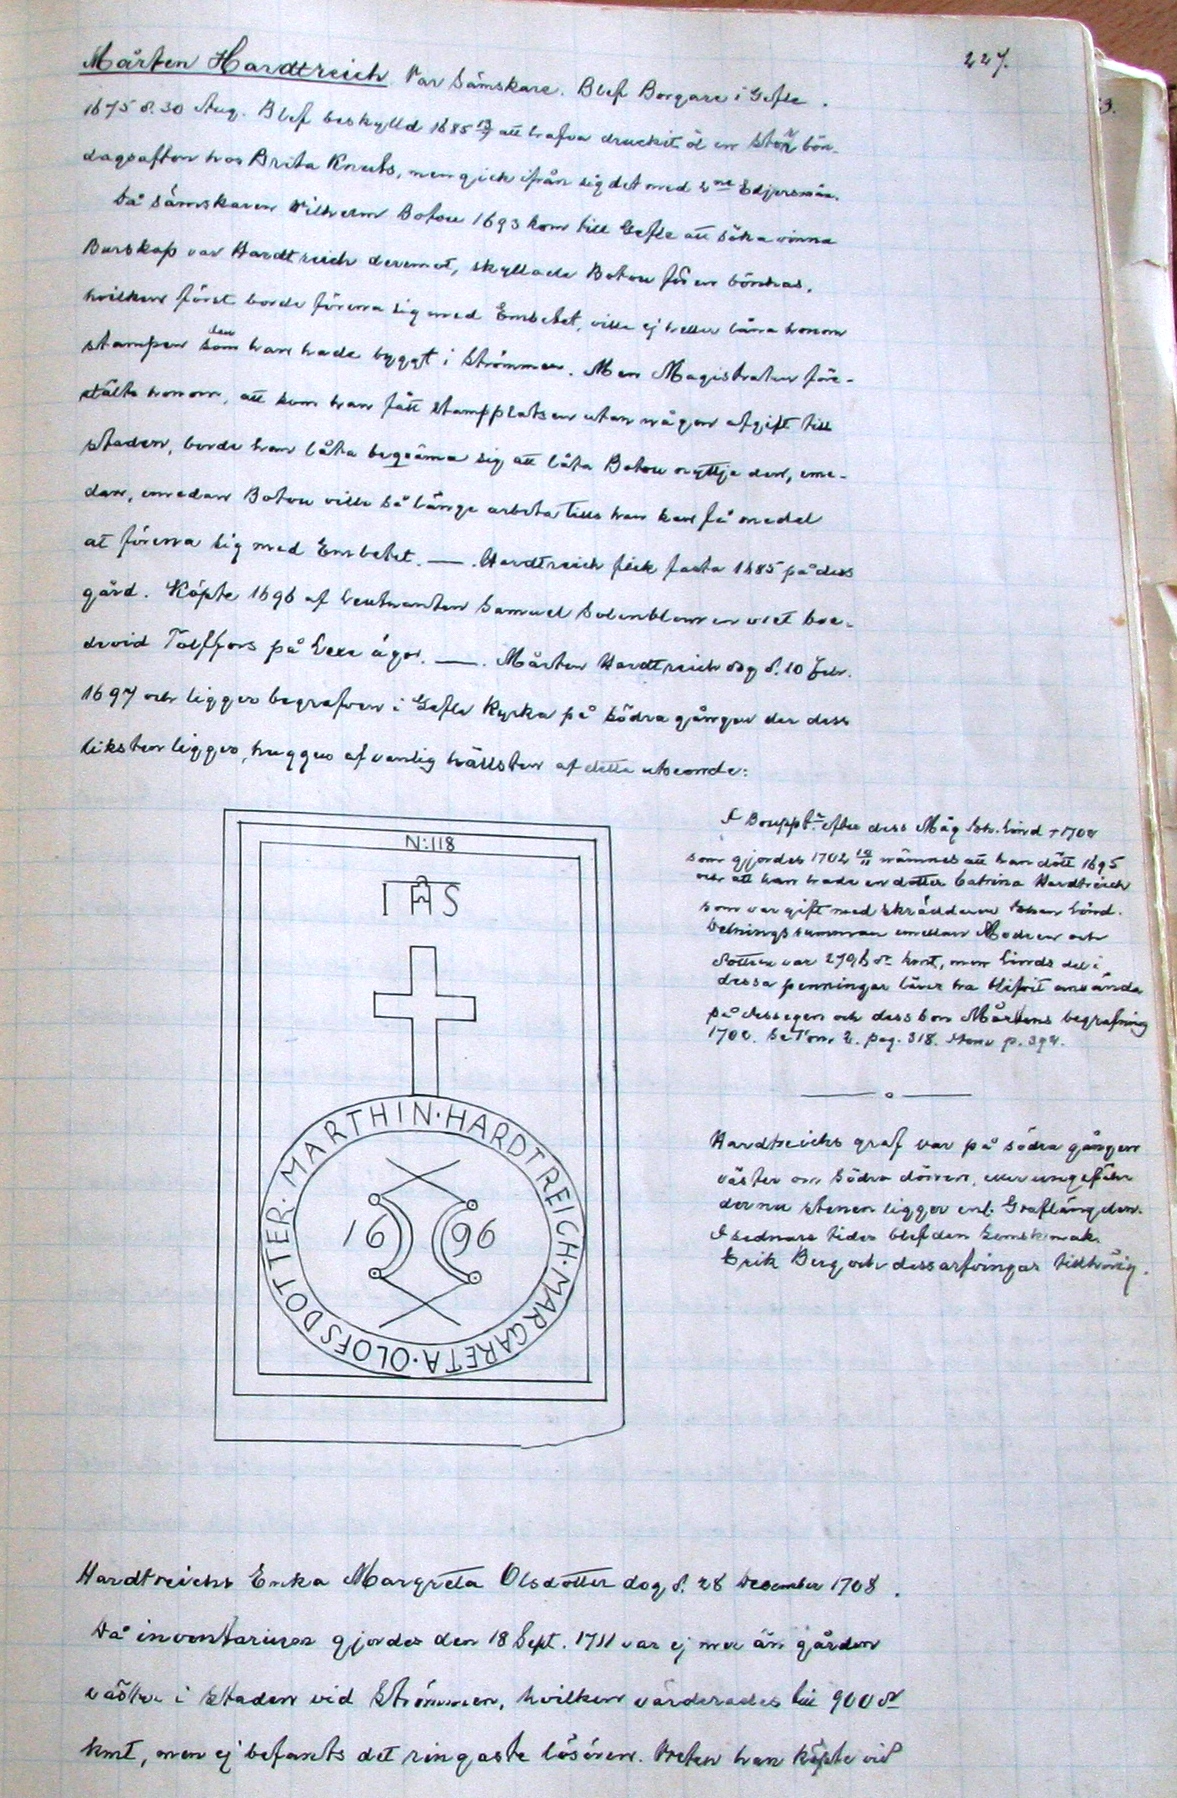 227.
Mårten Hardtreich. Var Sämskare. Blef Borgare i Gefle.
1675 d. 30 Aug. Blef beskylld 1685 13/7 att hafva druckit öl en stor bön-
dagsafton hos Brita Knuts, men gick ifrån sig det med 2ne Edgersmän.
Då sämskaren Wilhelm Botou 1693 kom till Gefle att söka vinna
Burskap var Hardtreich deremot, skyllade Botou för en bönhas,
hvilken först borde förena sig med Embetet, ville ej heller låna honom
stampen den som han hade byggt i Strömmen. Men Magistraten före-
stälte honom, att som han fått stampplatsen utan någon afgift till
staden, borde han låta beqväma sig att låta Botou nyttja den, eme-
dan, emedan Botou ville så länge arbeta tills han kan få medel
at förena sig med Embetet. — . Hardtreich fick fasta 1685 på dess
gård. Köpte 1696 af Leutnanten Samuel Solenblom en vret bre-
devid Tolffors på Lexe ägor. — . Mårten Hardtreich dog d. 10 Febr.
1697 och ligger begrafven i Gefle Kyrka på södra gången der dess
liksten ligger, huggen af vanlig hällsten af detta utseende:
N:118
IHS
MARTHIN·HARDTREICH·MARGARETA·OLOFSDOTTER·
16 96
I Bouppt:n efter dess Måg Joh. Lind † 1702
som gjordes 1702 nämnes att han dött 1695
och att han hade en dotter Catrina Hardtreich
som var gift med skräddaren Johan Lind.
Delningssumman emellan Modren och
dottren var 2796 dr kmt, men Linds del i
dessa penningar lärer ha blifvit använda
på dess egen och dess son Mårtens begrafning
1702. Se Tom 2. pag. 318. p. 392.
Hardtreichs graf var på södra gången
väster om södra dörren, eller ungefär
der nu stenen ligger enl. Graflängden.
I sednare tider blef den
Erik Berg och dess arfvingar tillhörig.
Hardtreichs Enka Margreta Olsdotter dog d. 28 December 1708.
Då inventarium gjordes den 18 Sept. 1711 var ej mer än gården
väster i staden vid Strömmen, hvilken värderades till 900 dr
kmt, men ej befants det ringaste lösören. Vreten han köpte vid